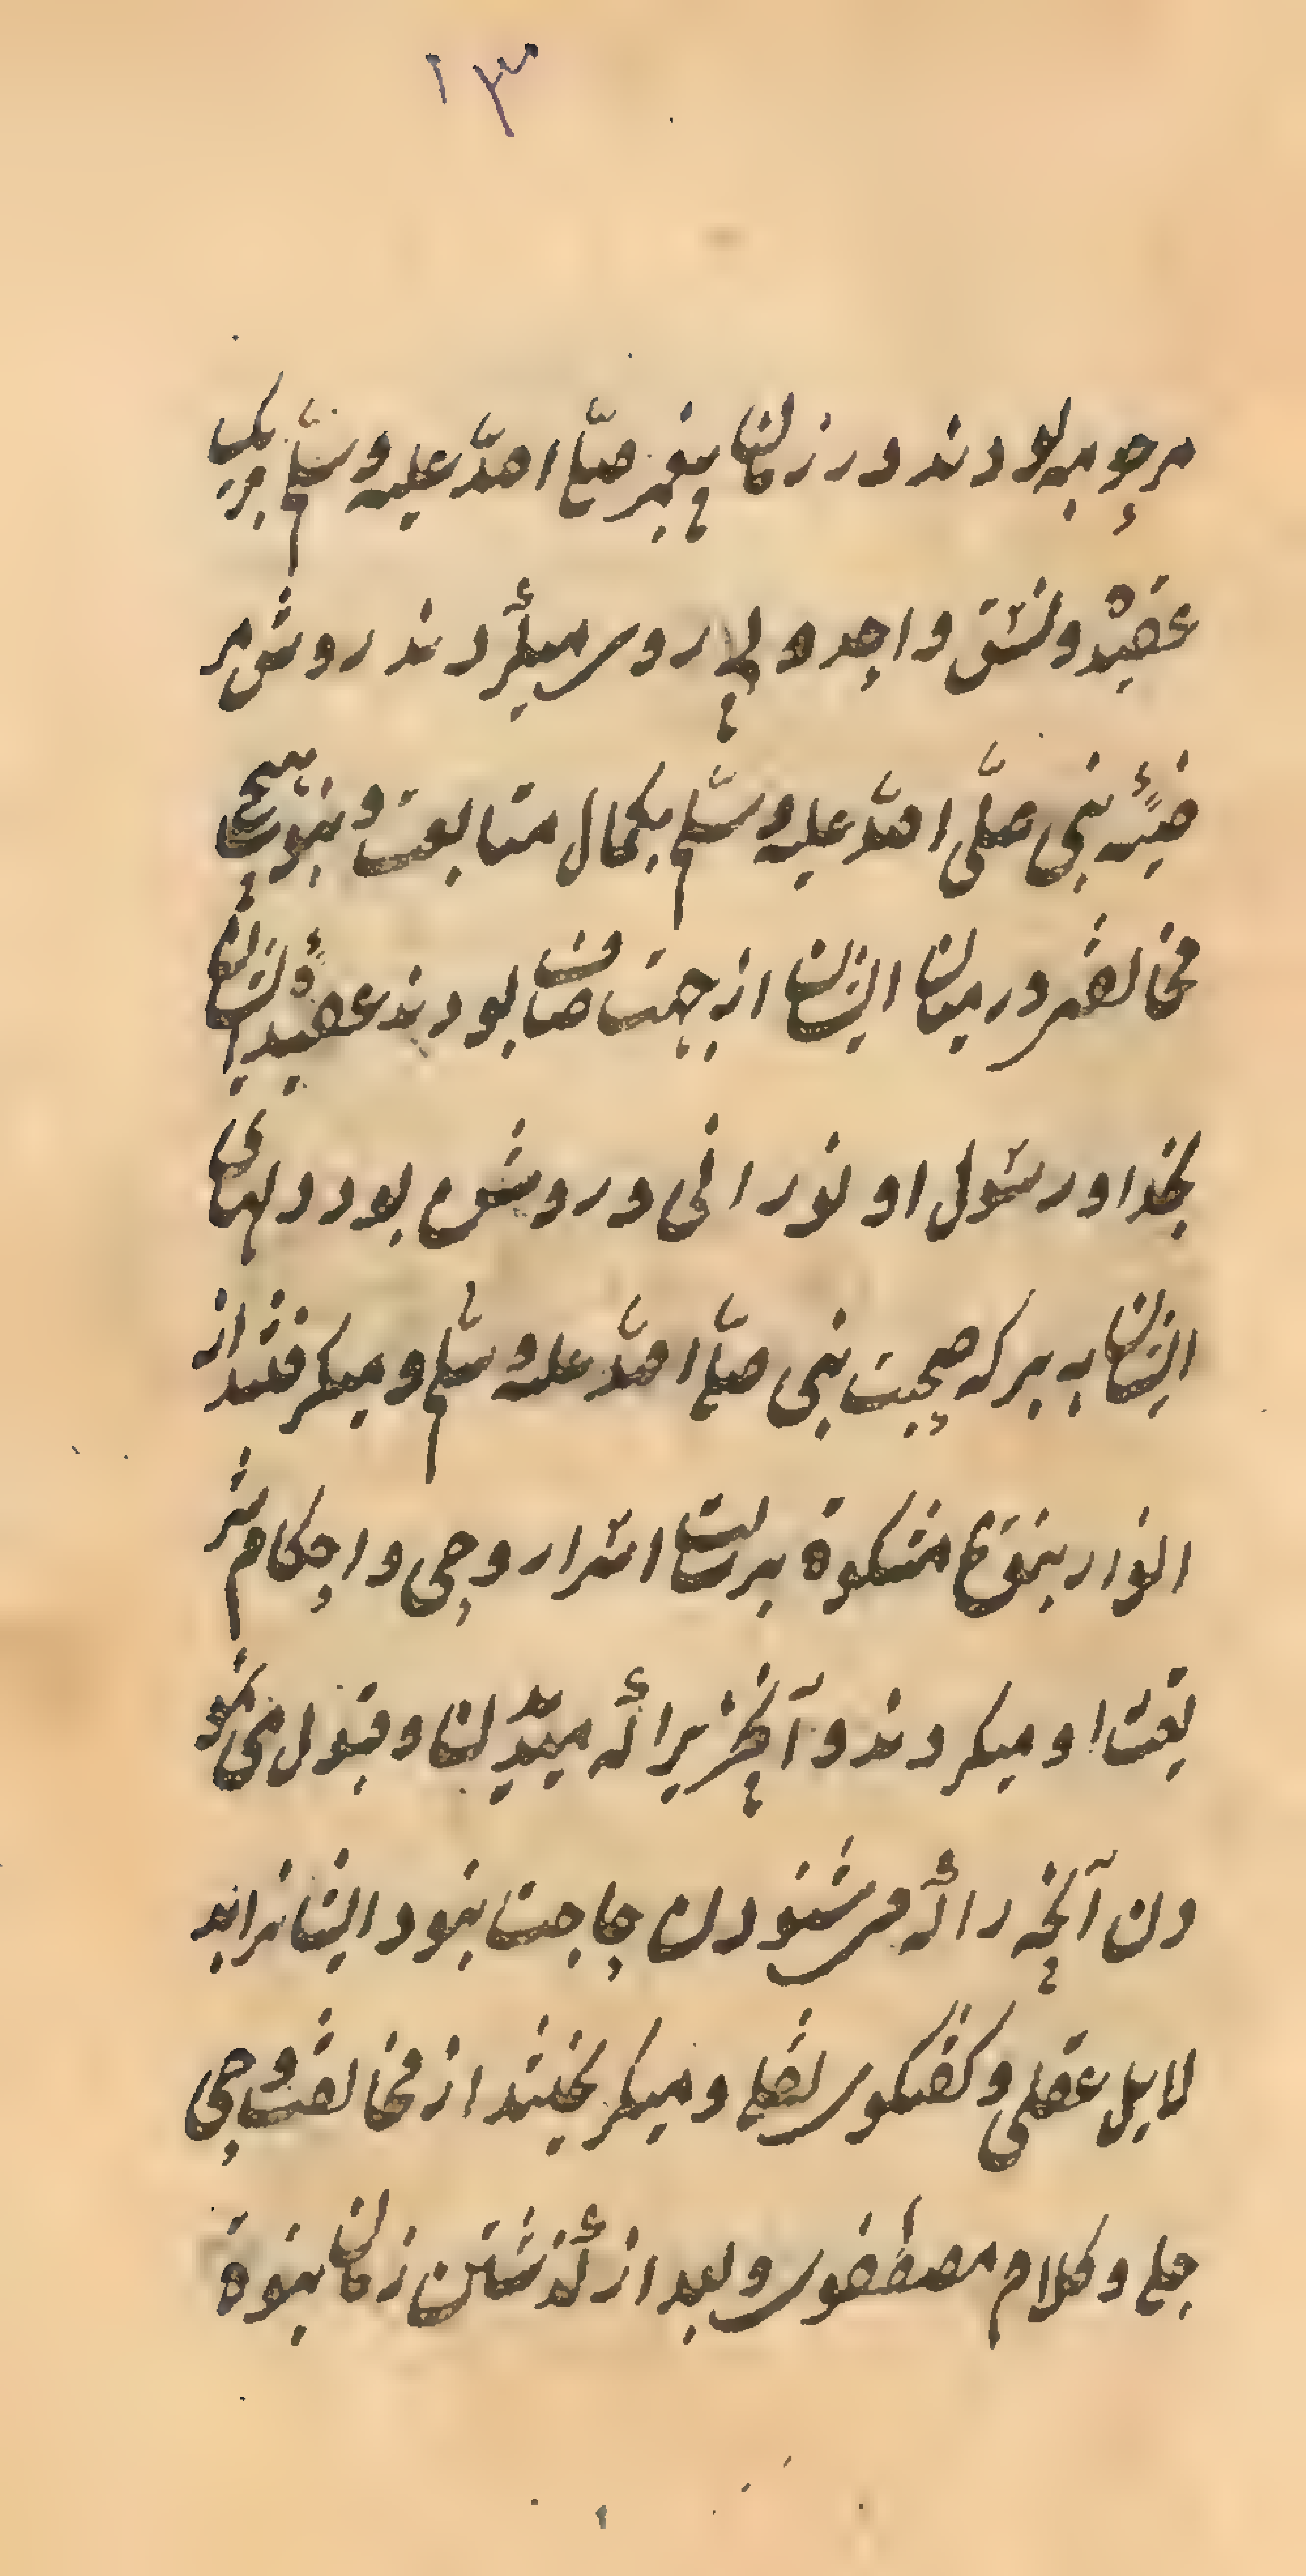 ۱۳
مرحومه بودند در زمان پیغمبر صلّی اللّه علیه وسلّم بر یک
عقیده ونسق واحد و لی روی میکردند روش مر
ضیّه نبی صلّی اللّه علیه وسلّم بکمال متابعت و نبود هیچ
مخالفتی در میان ایشان از جهت صفای بودند عقیده ایشان
بخدا و رسول او نورانی و روشن بود دلهای
ایشان به برکه صحبت نبی صلّی اللّه علیه وسلّم و میکرفتند از
انوار نبوّة مشکوة برسالت اسرار وحی و احکام شر
یعت او میکردند و آنچیز یرا که میدیدند و قبول می نمو
دن آنچه را که می شنودن حاجت نبود ایشانرا بد
لایل عقلی و کفتکوی نقلی و میکریختند از مخالفت وحی
جلی و کلام مصطفوی و بعد از گذشتن زمان نبوة